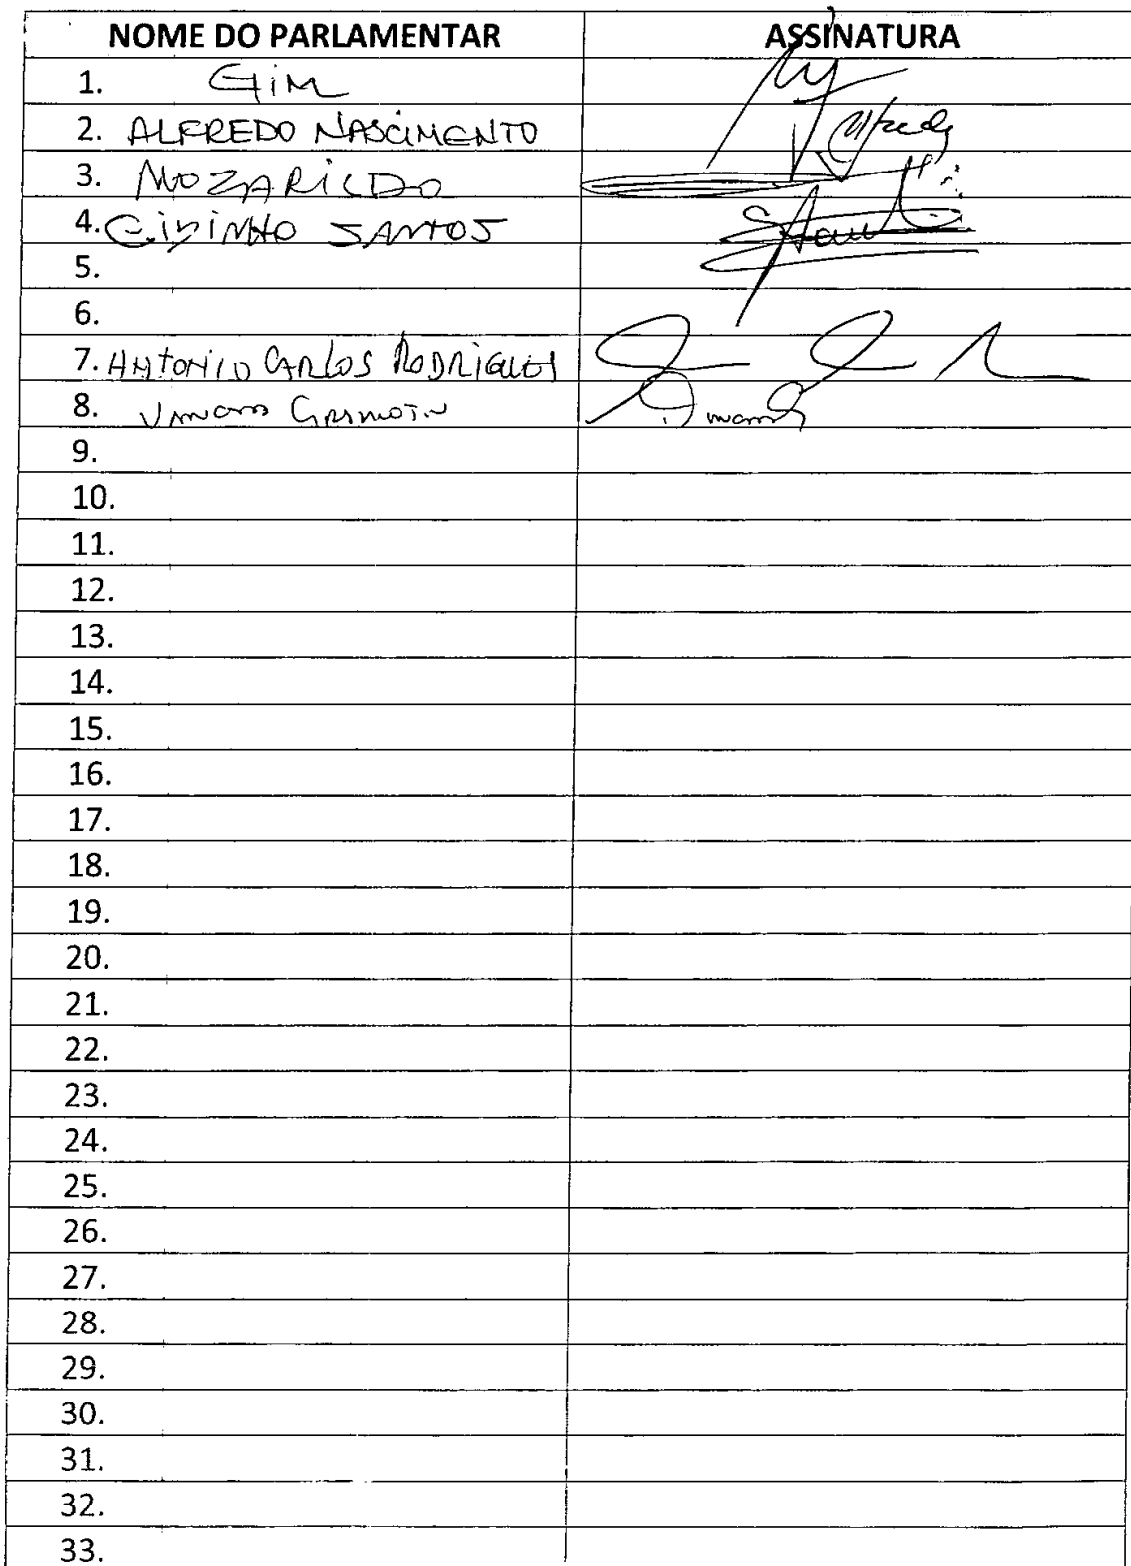 NOME DO PARLAMENTAR ASSINATURA
1. GIM
2. ALFREDO NASCIMENTO Alfredo
3. MOZARILDO
4. SANTOS
5.
6.
7. ANTONIO CARLOS RODRIGUES
8.
9.
10.
11.
12.
13.
14.
15.
16.
17.
18.
19.
20.
21.
22.
23.
24.
25.
26.
27.
28.
29.
30.
31.
32.
33.